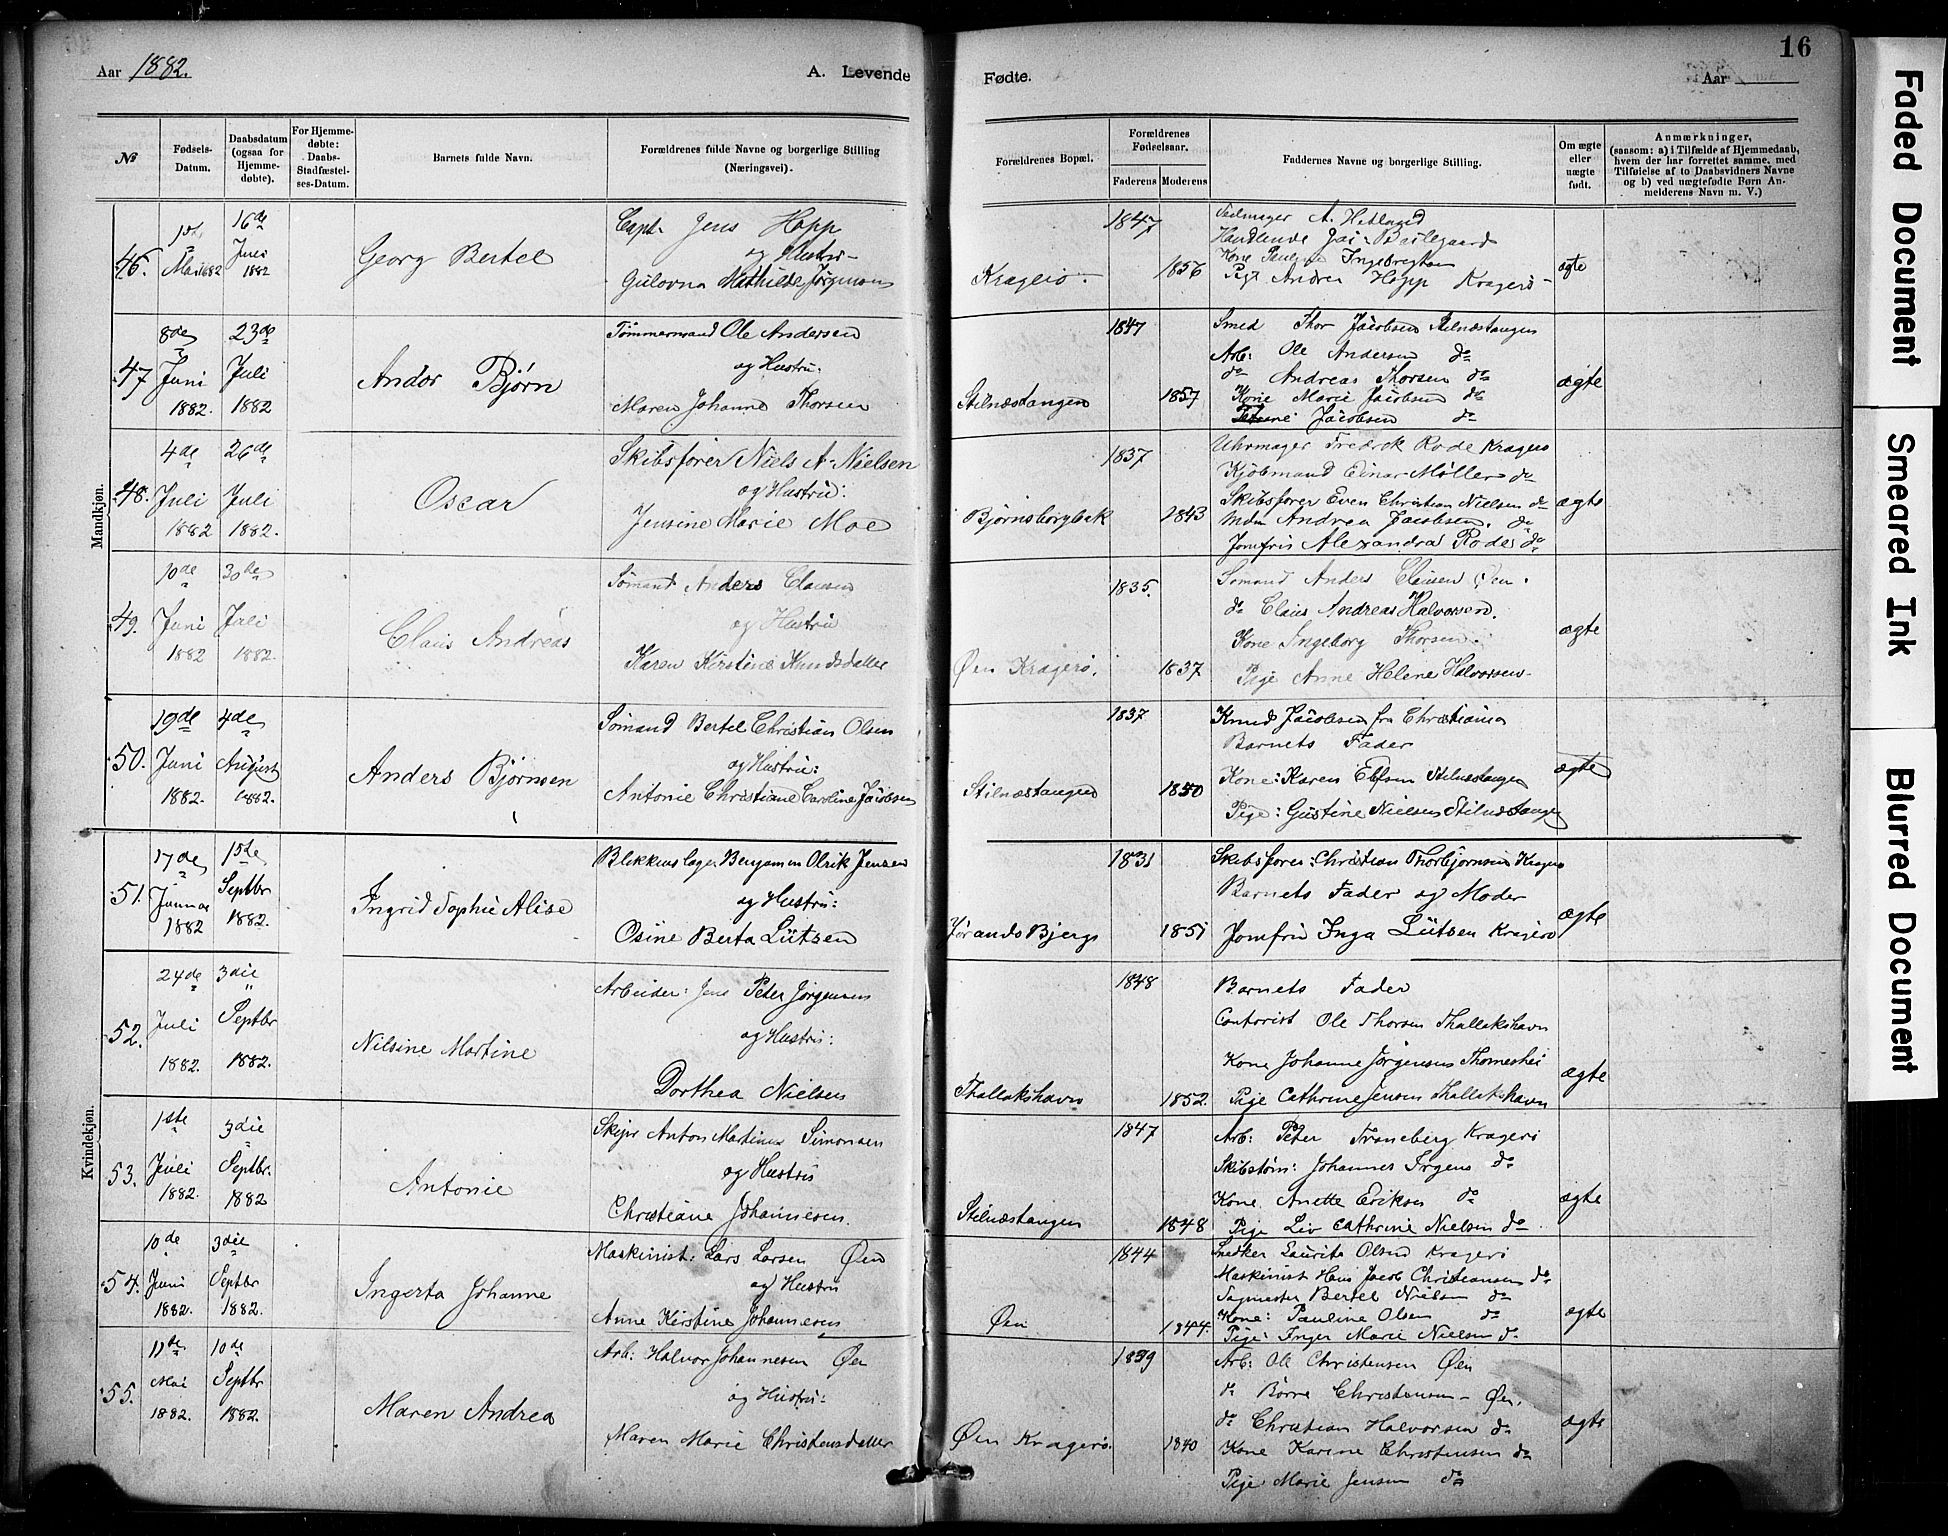 Aar 1882.
A. Levende
Fødte.
16
Aar
№
Fødsels-Datum.
Daabsdatum (ogsaa for Hjemme-døbte).
For Hjemme-døbte: Daabs-Stadfæstel-ses-Datum.
Barnets fulde Navn.
Forældrenes fulde Navne og borgerlige Stilling (Næringsvei).
Forældrenes Bopæl.
Forældrenes Fødselsaar.
Faderens
Moderens
Faddernes Navne og borgerlige Stilling.
Om ægte eller uægte født.
Anmærkninger,
(saasom: a) i Tilfælde af Hjemmedaab,
hvem der har forrettet samme, med
Tilføielse af to Daabsvidners Navne
og b) ved uægtefødte Børn An-
melderens Navn m. V.)
Mandkjøn.
46.
16de Juni 1882
Georg Bertel
Capt. Jens Hopp
og Hustru
Gulovna Mathilde Jørgensen
Kragerö.
1847
1856
A. Hetland
Handlende
Kone Pauline Ingebregtsen
Pige Andrea Hopp Kragerö
ægte
47
8de Juni 1882.
23de Juli 1882
Andor Bjørn
Tömmermand Ole Andersen
og Hustru.
Maren Johanne Thorsen
Stilnæstangen
1847
1857
Smed Thor Jacobsen Stilnæstangen
Arb: Ole Andersen do
do Andreas Thorsen do
Kone Marie Jacobsen do
Jacobsen do
ægte
48.
4de Juli 1882
26de Juli 1882.
Oscar
Skibsfører Niels A. Nielsen
og Hustru:
Jensine Marie Moe
Bjørnsborgbak
1837
1843
Uhrmager Fredrik Rode Kragerö
Kjöbmand Einar Møller do
Skibsfører Even Christian Nielsen do
Mdm Andrea Jacobsen. do
Jomfru Alexandra Rode do
ægte
49.
10de Juni 1882
30de Juli 1882.
Claus Andreas
Sömand Anders Clausen
og Hustru
Karen Kirstine Knudsdatter
Øen Kragerö.
1835.
1837
Sömand Anders Clausen Øen.
do Claus Andreas Halvorsen.
Kone Ingeborg Thorsen.
Pige Anne Helene Halvorsen
ægte
50.
19de Juni 1882.
4de August 1882.
Anders Bjørnsen
Sömand Bertel Christian Olsen
og Hustru:
Antonie Christiane Caroline Jacobsen
Stilnæstangen
1837
1850
Knud Jacobsen fra Christiania
Barnets Fader
Kone: Karen Elfsen Stilnæstangen
Pige: Gustine Nielsen Stilnæstangen
ægte
Kvindekjøn.
51.
17de Januar 1882
1ste Septbr 1882.
Ingrid Sophie Alise
Blikkenslager Benjamin Olrik Jensen
og Hustru:
Osine Berta Lütsen
1831
1851
Skibsfører: Christian Thorbjørnsen Kragerö
Barnets Fader og Moder
Jomfru Inga Lütsen Kragerö
ægte
52.
24de Juli 1882.
3die Septbr 1882.
Nilsine Martine
Arbeider: Jens Peter Jørgensen
og Hustru:
Dorthea Nielsen
Thallakshavn
1848
1852.
Barnets Fader
Contorist Ole Thorsen Thallakshavn
Kone Johanne Jørgensen Thomeshei
Pige Cathrine Jensen Thallakshavn
ægte
53.
1ste Juli 1882.
3die Septbr. 1882
Antonie
Skipr Anton Martinus Simonsen
og Hustru
Christiane Johannesen.
Stilnæstangen
1847
1848
Arb: Peter Traneberg Kragerö
Skibstøm: Johannes Irgens do
Kone. Anette Eriksen do
Pige Liv Cathrine Nielsen do
ægte
54.
10de Juni 1882.
3die Septbr 1882.
Ingerta Johanne
Maskinist: Lars Larsen Øen
og Hustru
Anne Kirstine Johannesen
Øen
1844
1844.
Snedker Laurits Olsen Kragerö
Maskinist Hans Jacob Christiansen do
Sagmester Bertel Nielsen do
Kone: Pauline Olsen do
Pige: Inger Marie Nielsen do
ægte
55.
11de Mai 1882.
10de Septbr 1882.
Maren Andrea
Arb: Halvor Johannesen Øen
og Hustru:
Maren Marie Christensdatter
Øen Kragerö.
1839
1840
Arb: Ole Christensen Øen
do Börre Christensen Øen.
do Christian Halvorsen do
Kone Karine Christensen do
Pige Marie Jensen do
ægte
Faded Document
Smeared Ink
Blurred Document